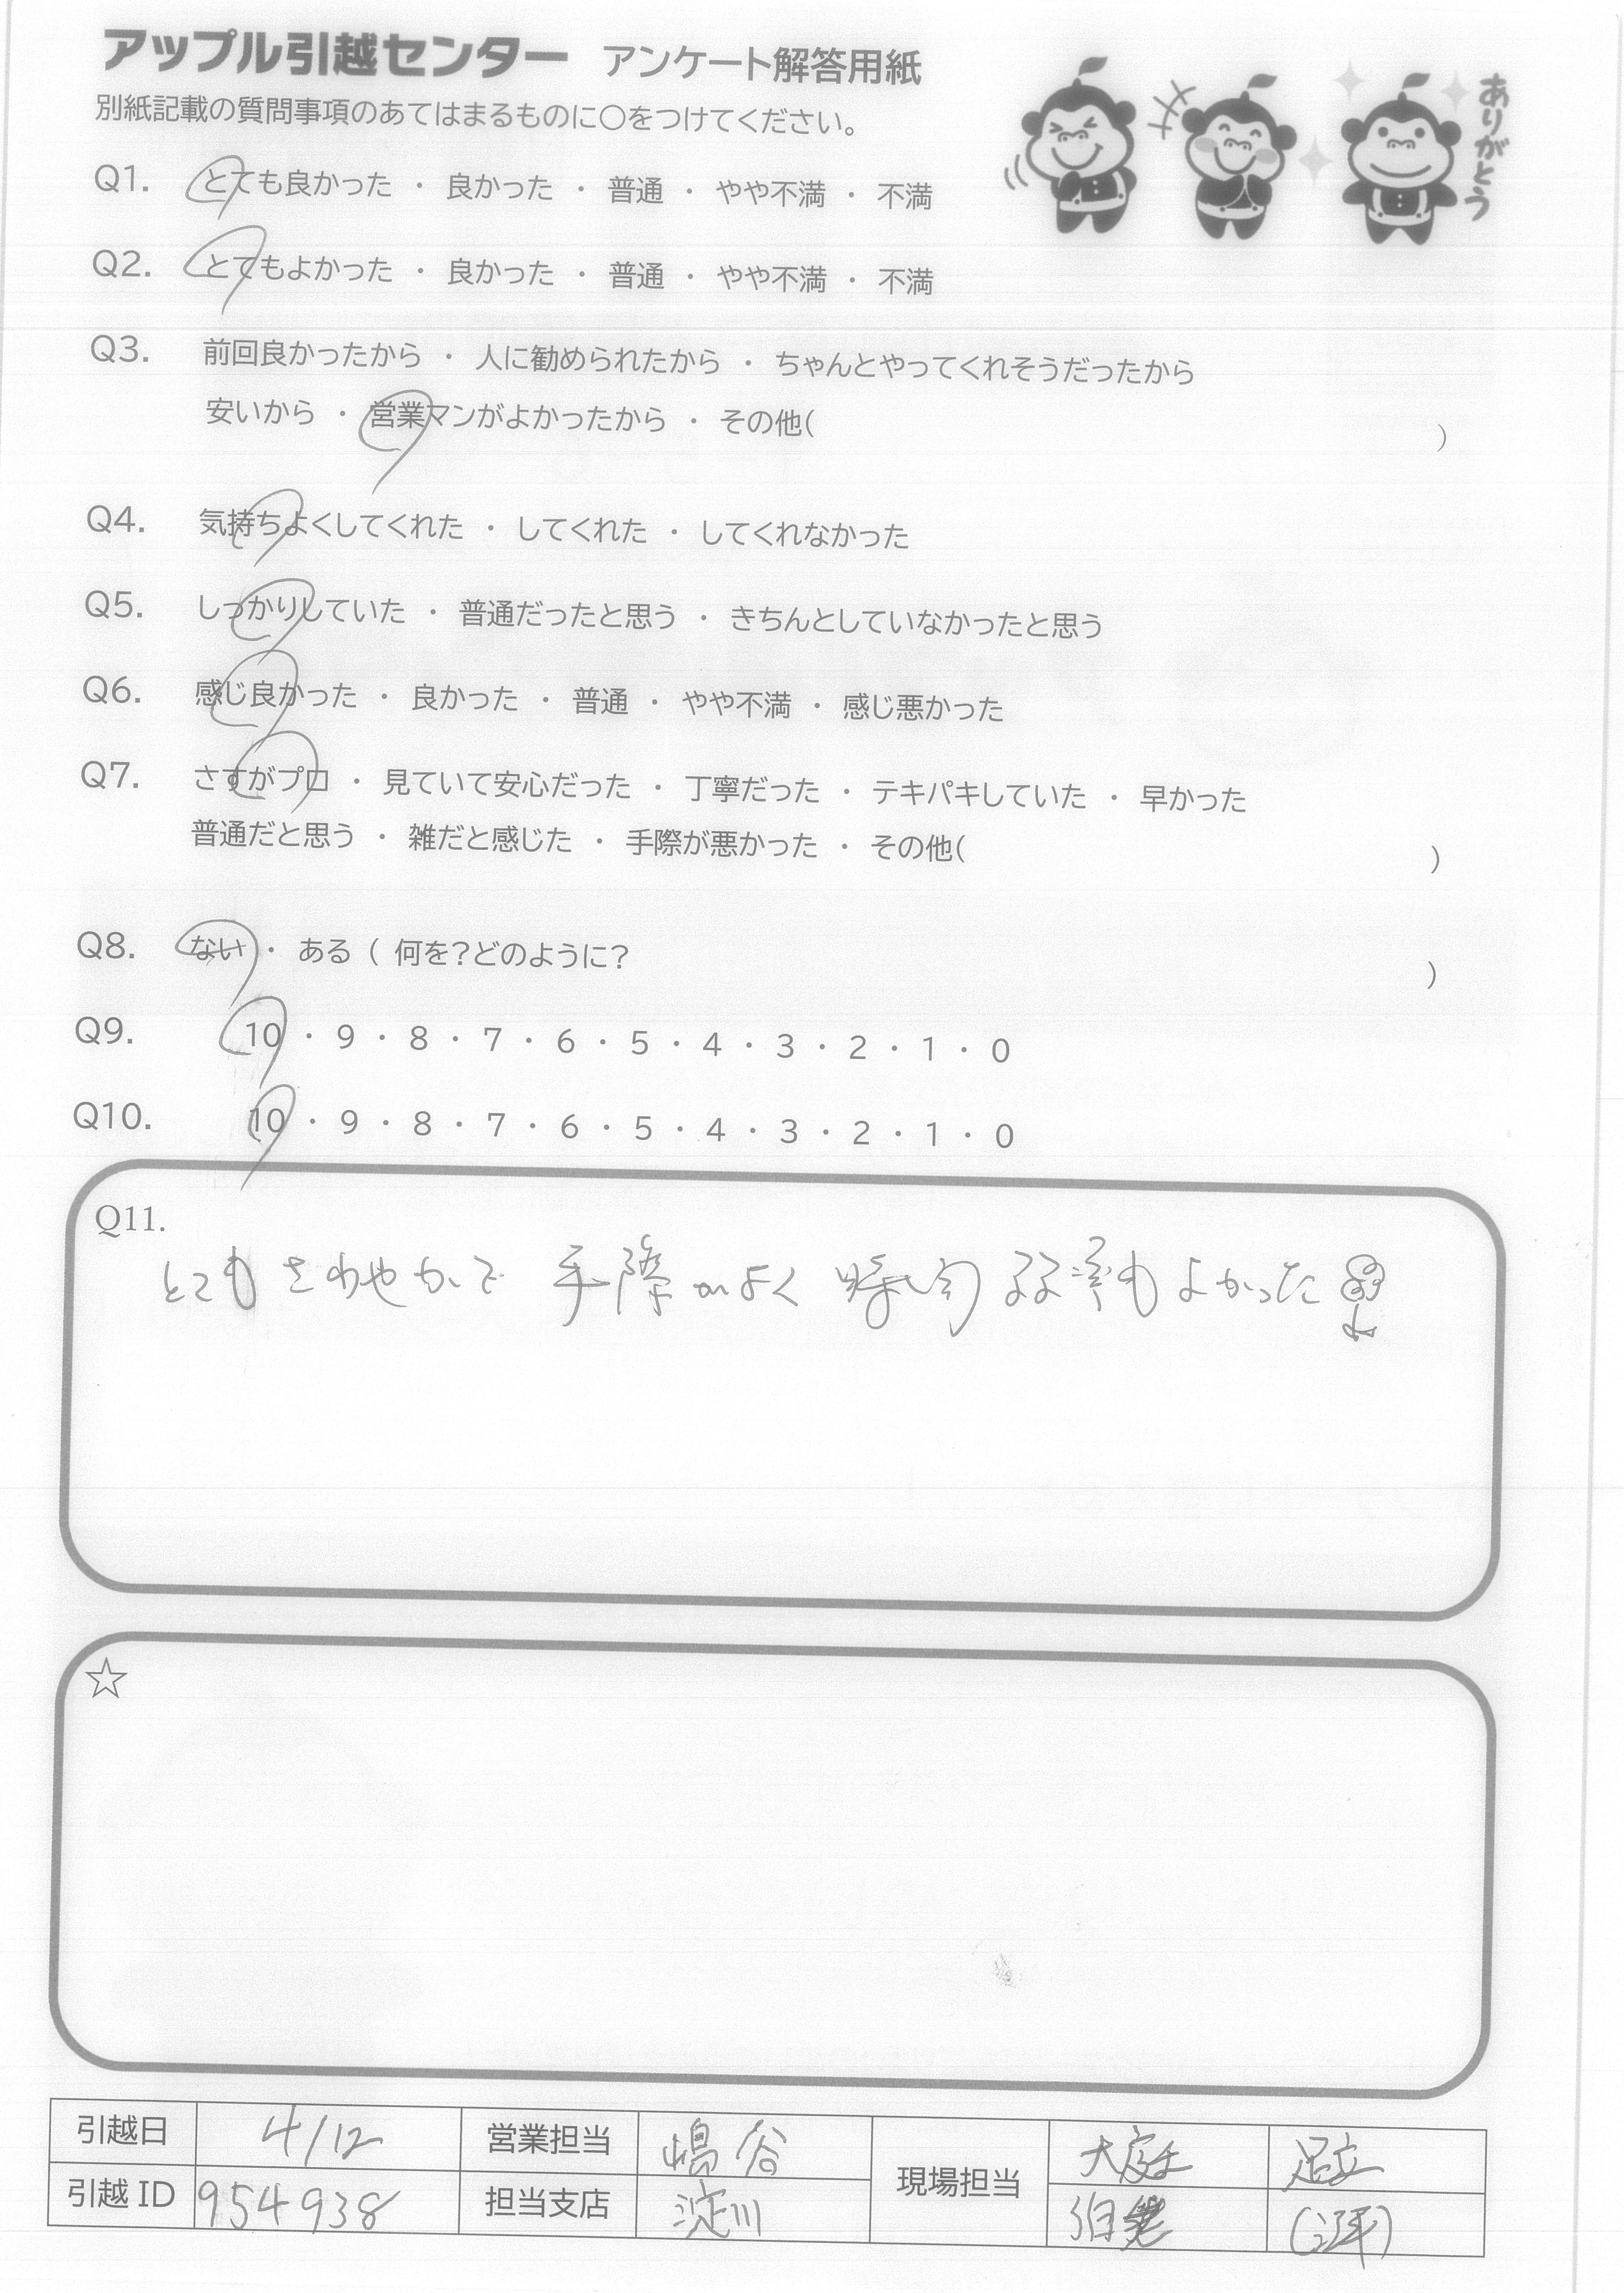 アップル引越センター アンケート解答用紙
別紙記載の質問事項のあてはまるものに〇をつけてください。
ありがとう
Q1. とても良かった ・ 良かった ・ 普通 ・ やや不満 ・ 不満
Q2. とてもよかった ・ 良かった ・ 普通 ・ やや不満 ・ 不満
Q3. 前回良かったから ・ 人に勧められたから ・ ちゃんとやってくれそうだったから
安いから ・ 営業マンがよかったから ・ その他( )
Q4. 気持ちよくしてくれた ・ してくれた ・ してくれなかった
Q5. しっかりしていた ・ 普通だったと思う ・ きちんとしていなかったと思う
Q6. 感じ良かった ・ 良かった ・ 普通 ・ やや不満 ・ 感じ悪かった
Q7. さすがプロ ・ 見ていて安心だった ・ 丁寧だった ・ テキパキしていた ・ 早かった
普通だと思う ・ 雑だと感じた ・ 手際が悪かった ・ その他( )
Q8. ない ・ ある ( 何を?どのように? )
Q9. 10 ・ 9 ・ 8 ・ 7 ・ 6 ・ 5 ・ 4 ・ 3 ・ 2 ・ 1 ・ 0
Q10. 10 ・ 9 ・ 8 ・ 7 ・ 6 ・ 5 ・ 4 ・ 3 ・ 2 ・ 1 ・ 0
Q11.
とてもさわやかで 手際がよく もよかった
☆
引越日 4/12 営業担当 嶋谷 現場担当 大庭 足立
引越 ID 954938 担当支店 淀川